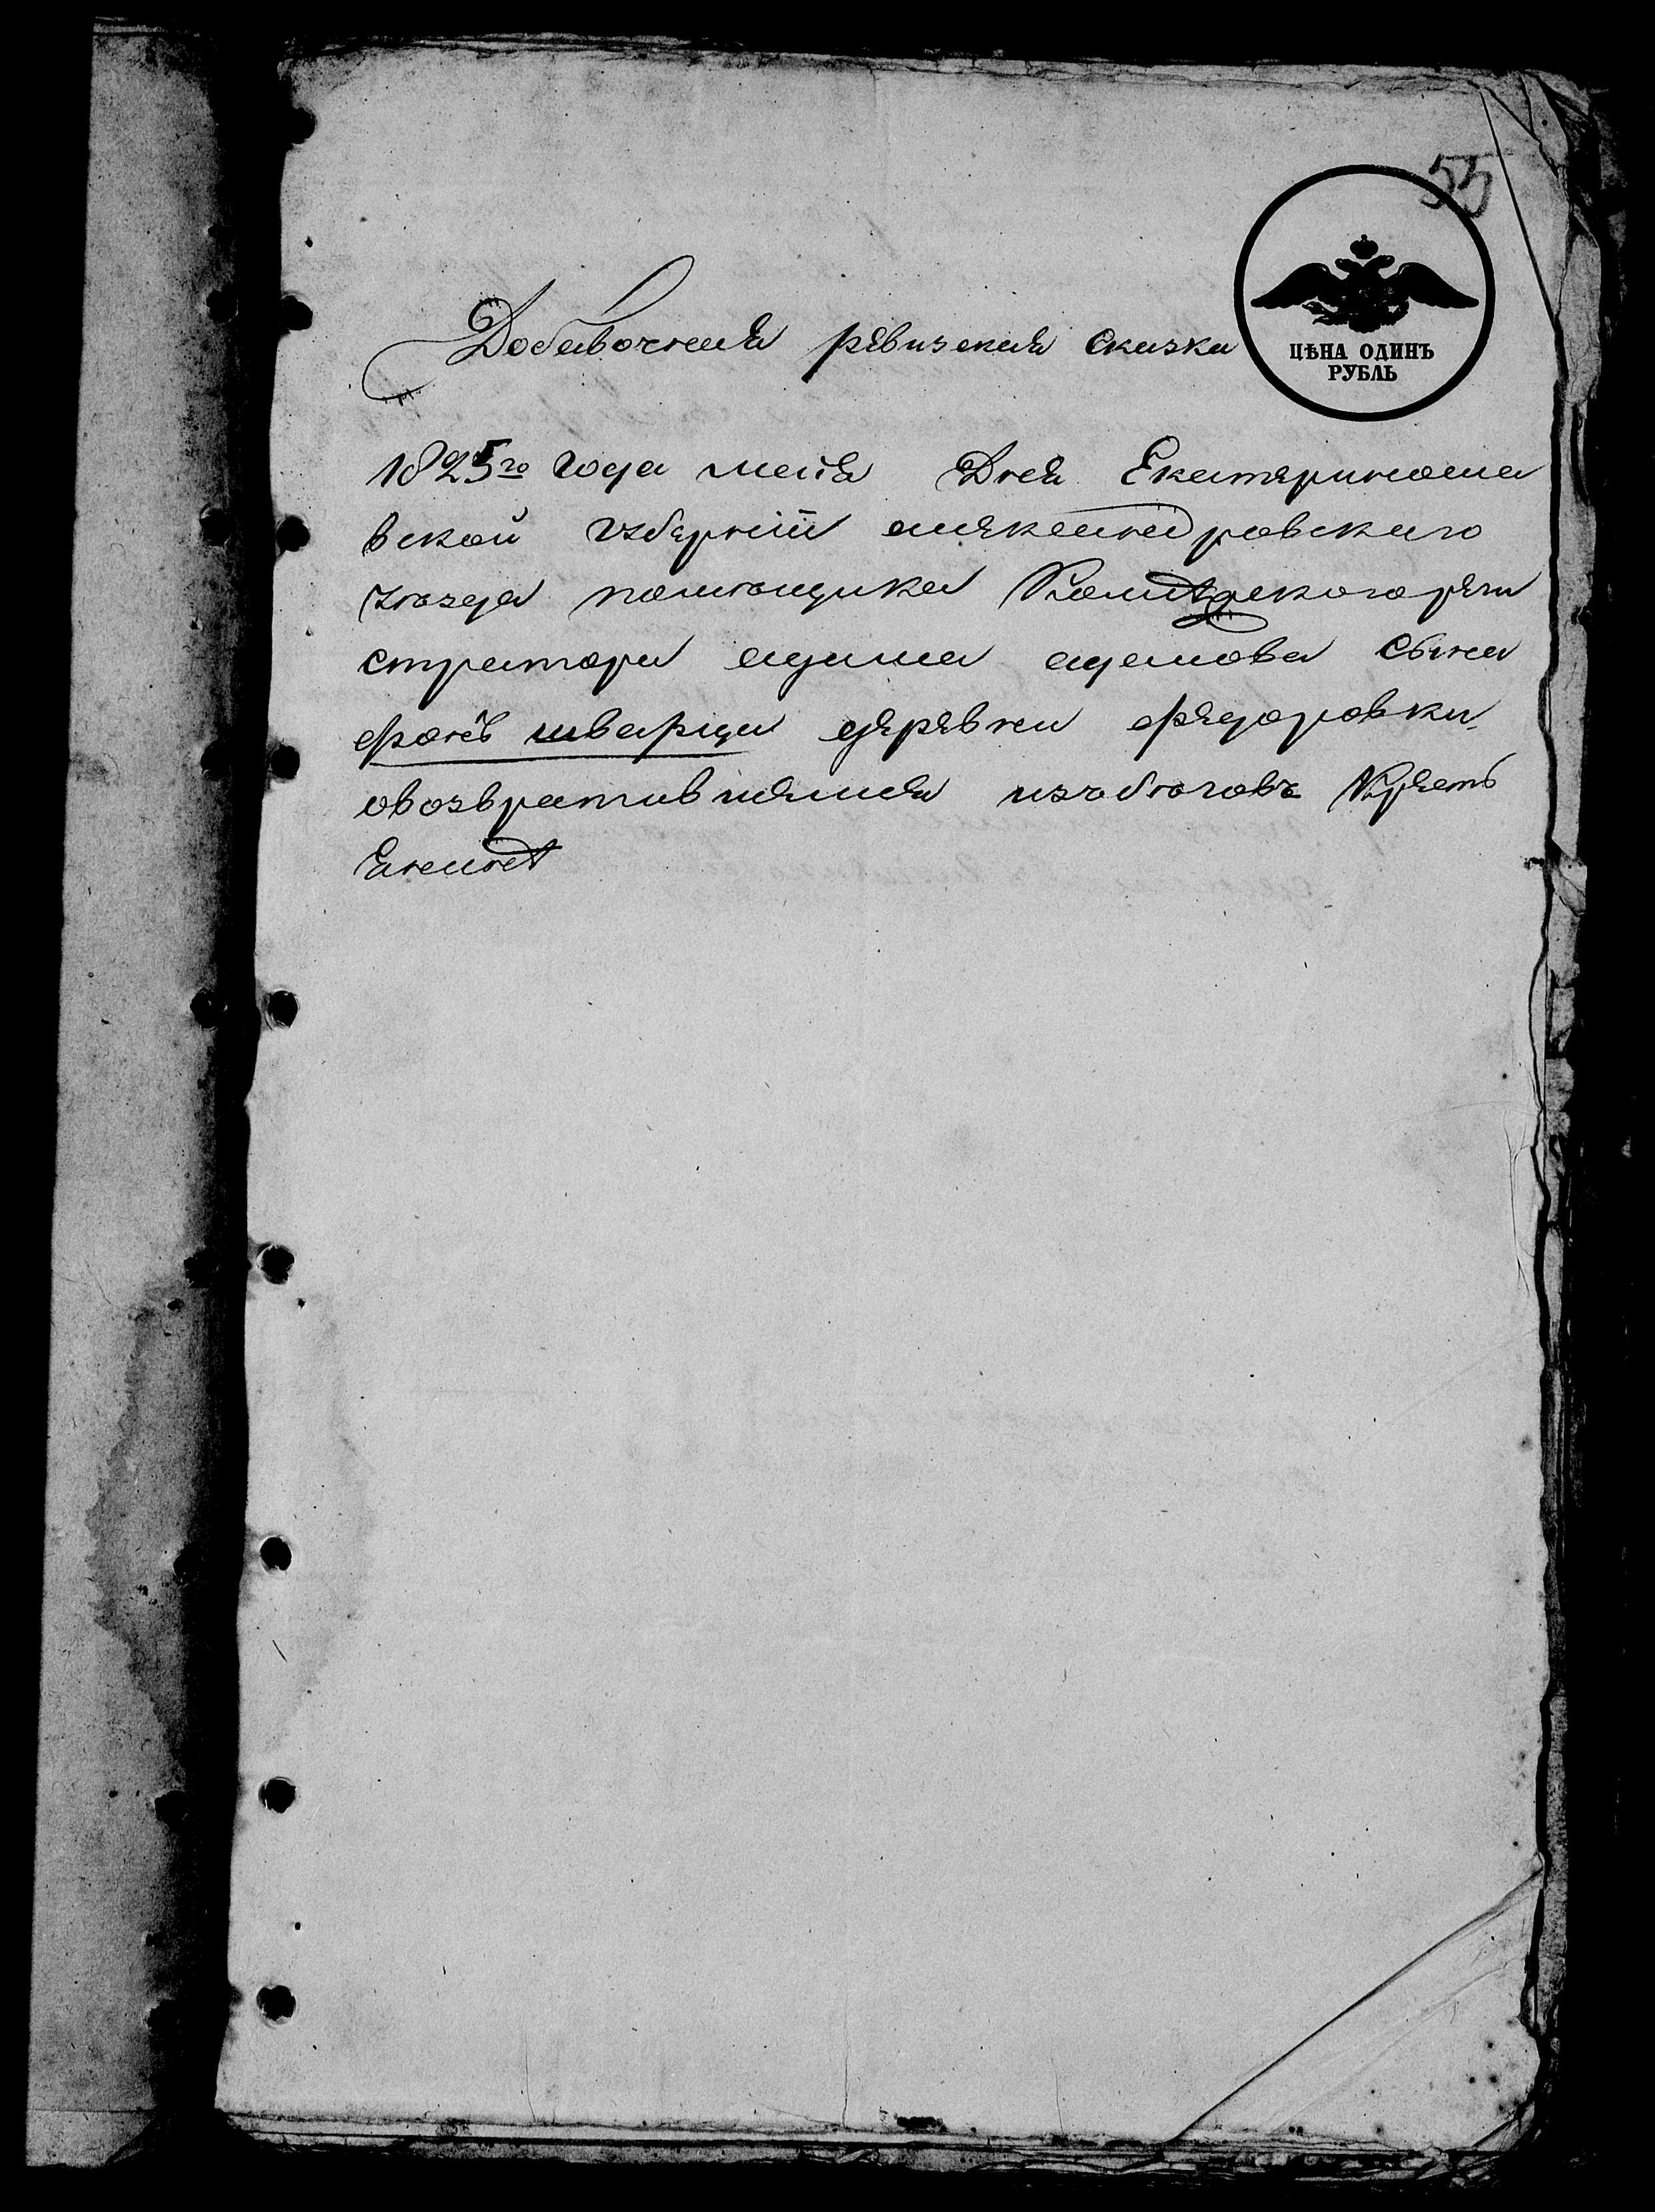 55
ЦѢНА ОДИНЪ
РУБЛЬ
Добавочная ревизская сказка
1825го года маія Дня Екатериносла
вской губерніи александровскаго
уезда помещика Колидзского реги
стратора адама адамова сына
фонъ шварца деревни федоровки
овозвратившемся избеговъ Крест
янина